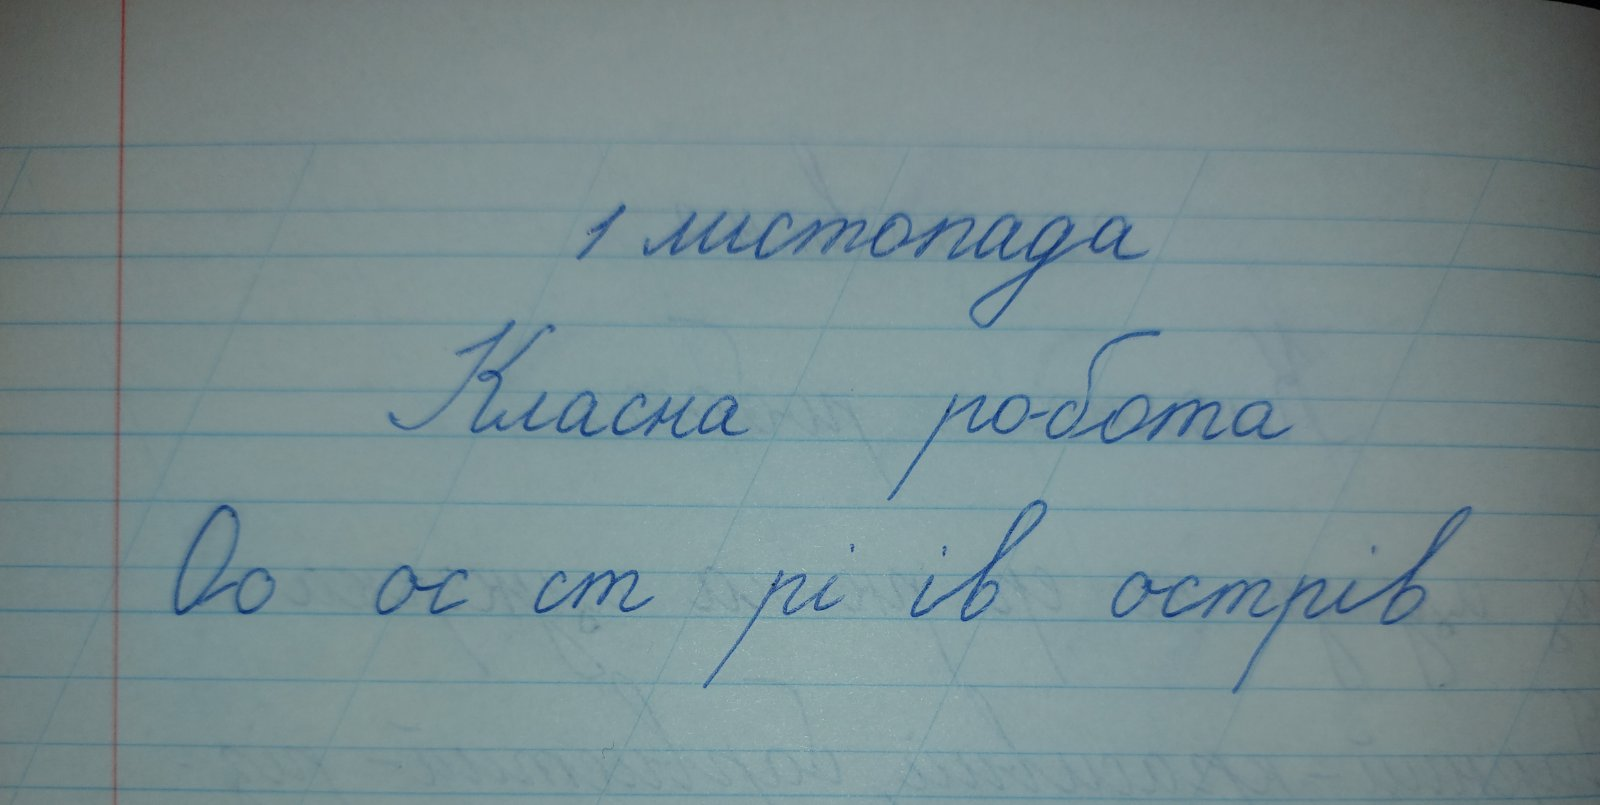 1 листопада
Класна робота
Оо ос ст рі ів острів